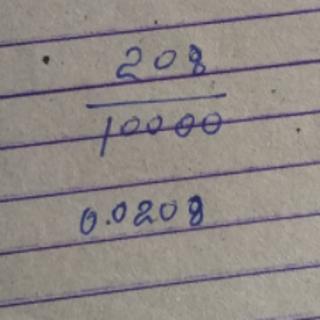 208
10000
0.0208